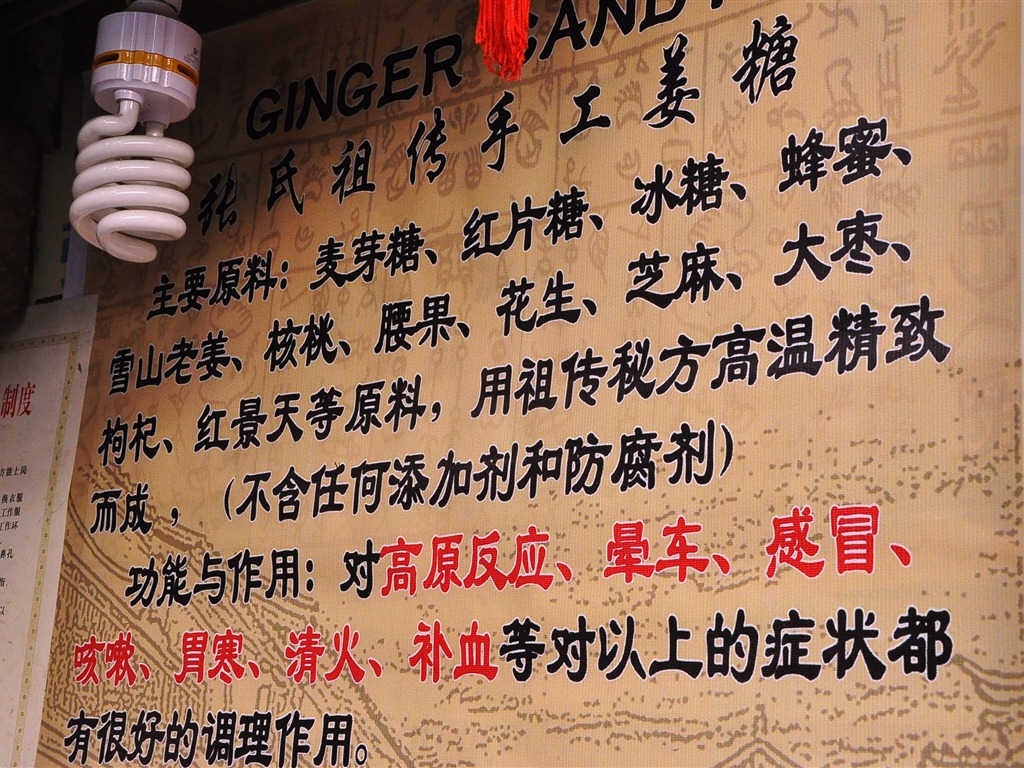 GINGER CANDY
张氏祖传手工姜糖
主要原料：麦芽糖、红片糖、冰糖、蜂蜜、
雪山老姜、核桃、腰果、花生、芝麻、大枣、
枸杞、红景天等原料，用祖传秘方高温精致
而成，（不含任何添加剂和防腐剂）
功能与作用：对高原反应、晕车、感冒、
咳嗽、胃寒、清火、补血等对以上的症状都
有很好的调理作用。
制度
方能上岗
换衣服
工作服
工作环
鼻孔
以